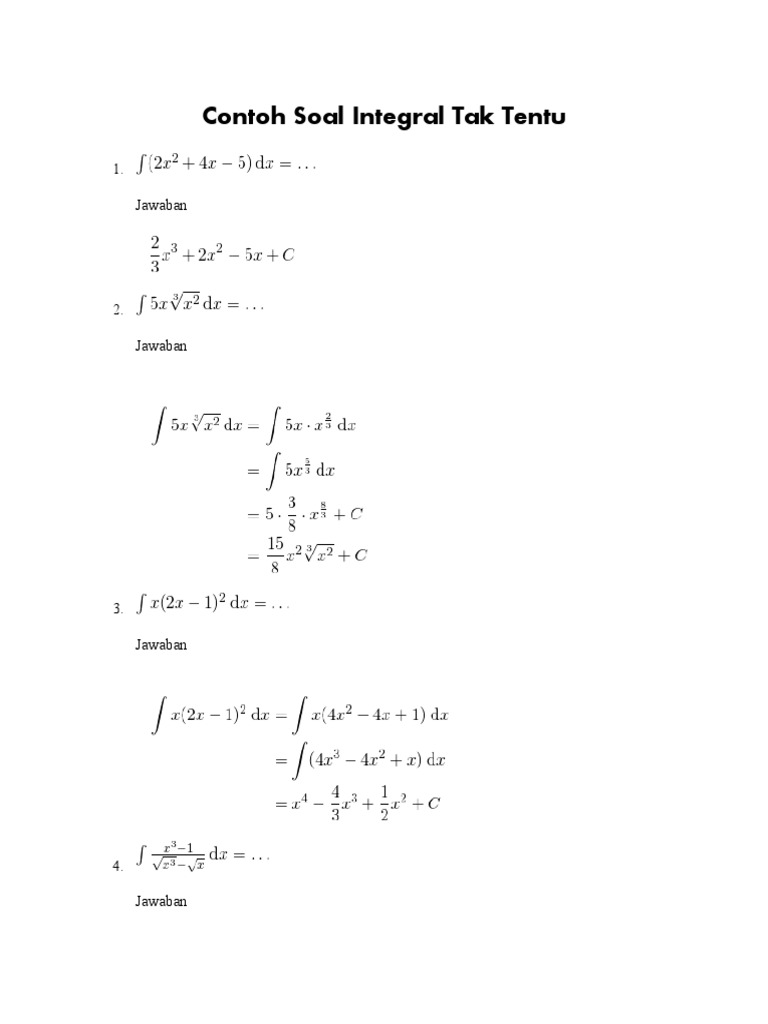 Contoh Soal Integral Tak Tentu
1. ∫(2x² + 4x − 5) dx = …
Jawaban
2/3 x³ + 2x² − 5x + C
2. ∫ 5x∛x² dx = …
Jawaban
∫ 5x∛x² dx = ∫ 5x · x^(2/3) dx
= ∫ 5x^(5/3) dx
= 5 · 3/8 · x^(8/3) + C
= 15/8 x²∛x² + C
3. ∫ x(2x − 1)² dx = …
Jawaban
∫ x(2x − 1)² dx = ∫ x(4x² − 4x + 1) dx
= ∫(4x³ − 4x² + x) dx
= x⁴ − 4/3 x³ + 1/2 x² + C
4. ∫ (x³−1)/(√x³−√x) dx = …
Jawaban